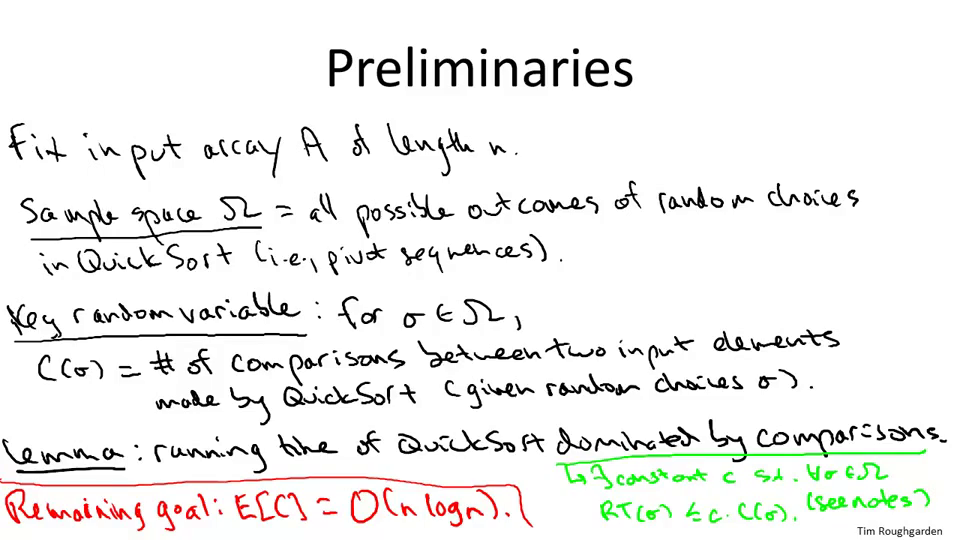 Preliminaries
Fix input array A of length n.
Sample space Ω = all possible outcomes of random choices
in QuickSort (i.e., pivot sequences).
Key random variable : for σ ∈ Ω,
C(σ) = # of comparisons between two input elements
made by QuickSort (given random choices σ).
Lemma : running time of QuickSort dominated by comparisons.
↳ ∃ constant c s.t. ∀σ ∈ Ω
RT(σ) ≤ c · C(σ). (see notes)
Remaining goal: E[C] = O(n log n).
Tim Roughgarden